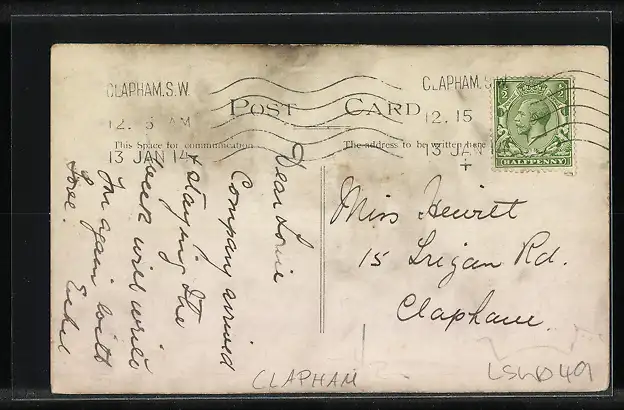 CLAPHAM.S.W.
12.15 AM
13 JAN 14
CLAPHAM.S.W.
12.15
13 JAN
+
POST CARD
This Space for communication
The address to be written here
HALFPENNY
Dear Louie
Company arrived
& staying the
week will write
you again with
Love. Ethel
Miss Hewitt
15 Irigan Rd.
Clapham.
CLAPHAM
LSWD409